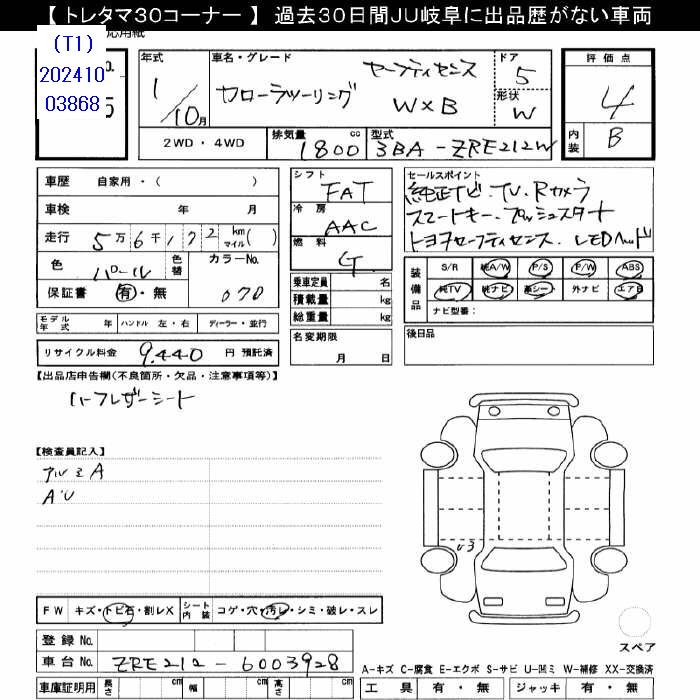 【 トレタマ30コーナー 】 過去30日間JU岐阜に出品歴がない車両
(T1)
202410
03868
年式 車名・グレード ドア 評価点
1/10月 カローラツーリング セーフティセンス WXB 5 4
形状 W
内装 B
2WD・4WD 排気量 1800 cc 型式 3BA-ZRE212W
車歴 自家用・( )
シフト FAT
セールスポイント
純正ナビ・TV・Rカメラ
スマートキー・プッシュスタート
トヨタセーフティセンス・LEDヘッド
車検 年 月
冷房 AAC
走行 5万6千172 km マイル( )
燃料 G
色 パール 色替 カラーNo. 070
保証書 有・無
乗車定員 名
積載量 kg
総重量 kg
装備品 S/R 純A/W P/S P/W ABS
純TV 純ナビ 革シート 外ナビ エアB
ナビ型番:
モデル年式 年 ハンドル 左・右 ディーラー・並行
名変期限 月 日
後日品
リサイクル料金 9,440 円 預託済
【出品店申告欄(不良箇所・欠品・注意事項等)】
ハーフレザーシート
【検査員記入】
アルミA
A・U
U3
FW キズ・トビ石・割レX シート内装 コゲ・穴・汚レ・シミ・破レ・スレ
登録No.
車台No. ZRE212-6003928
スペア
A-キズ C-腐食 E-エクボ S-サビ U-凹ミ W-補修 XX-交換済
車庫証明用 長さ cm 幅 cm 高さ cm 工具 有・無 ジャッキ 有・無